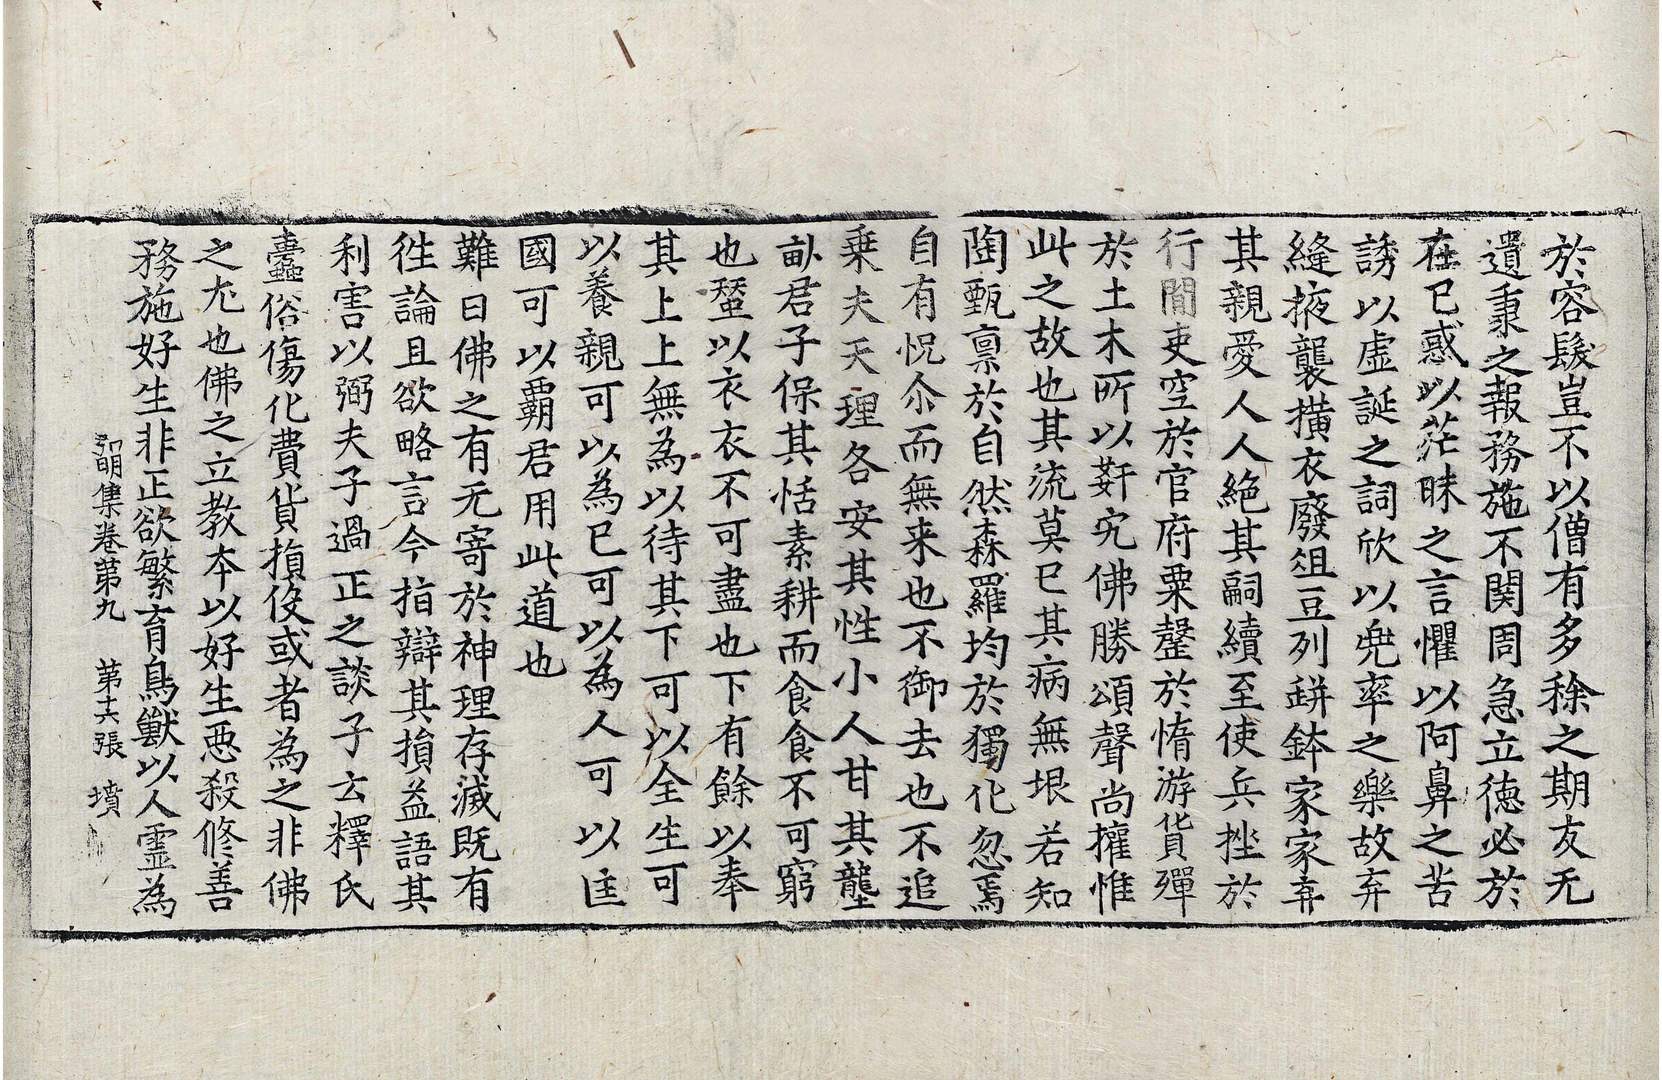 於容髮豈不以僧有多稌之期友无
遺秉之報務施不関周急立徳必於
在己惑以茫昧之言懼以阿鼻之苦
誘以虚誕之詞欣以兠率之樂故弃
縫掖襲撗衣廢俎豆列缾鉢家家弃
其親愛人人絶其嗣續至使兵挫於
行間吏空於官府粟罄於惰游貨殫
於土木所以姧宄佛勝頌聲尚擁惟
此之故也其流莫已其病無垠若知
陶甄禀於自然森羅均於獨化忽焉
自有怳尒而無来也不御去也不追
乗夫天理各安其性小人甘其壟
畝君子保其恬素耕而食食不可窮
也蝅以衣衣不可盡也下有餘以奉
其上上無為以待其下可以全生可
以養親可以為己可以為人可以匡
國可以覇君用此道也
難曰佛之有无寄於神理存滅既有
徃論且欲略言今指辯其損益語其
利害以弼夫子過正之談子云釋氏
蠹俗傷化費貨損役或者為之非佛
之尤也佛之立教夲以好生惡殺修善
務施好生非正欲繁育鳥獸以人靈為
弘明集卷第九　第十六張　墳